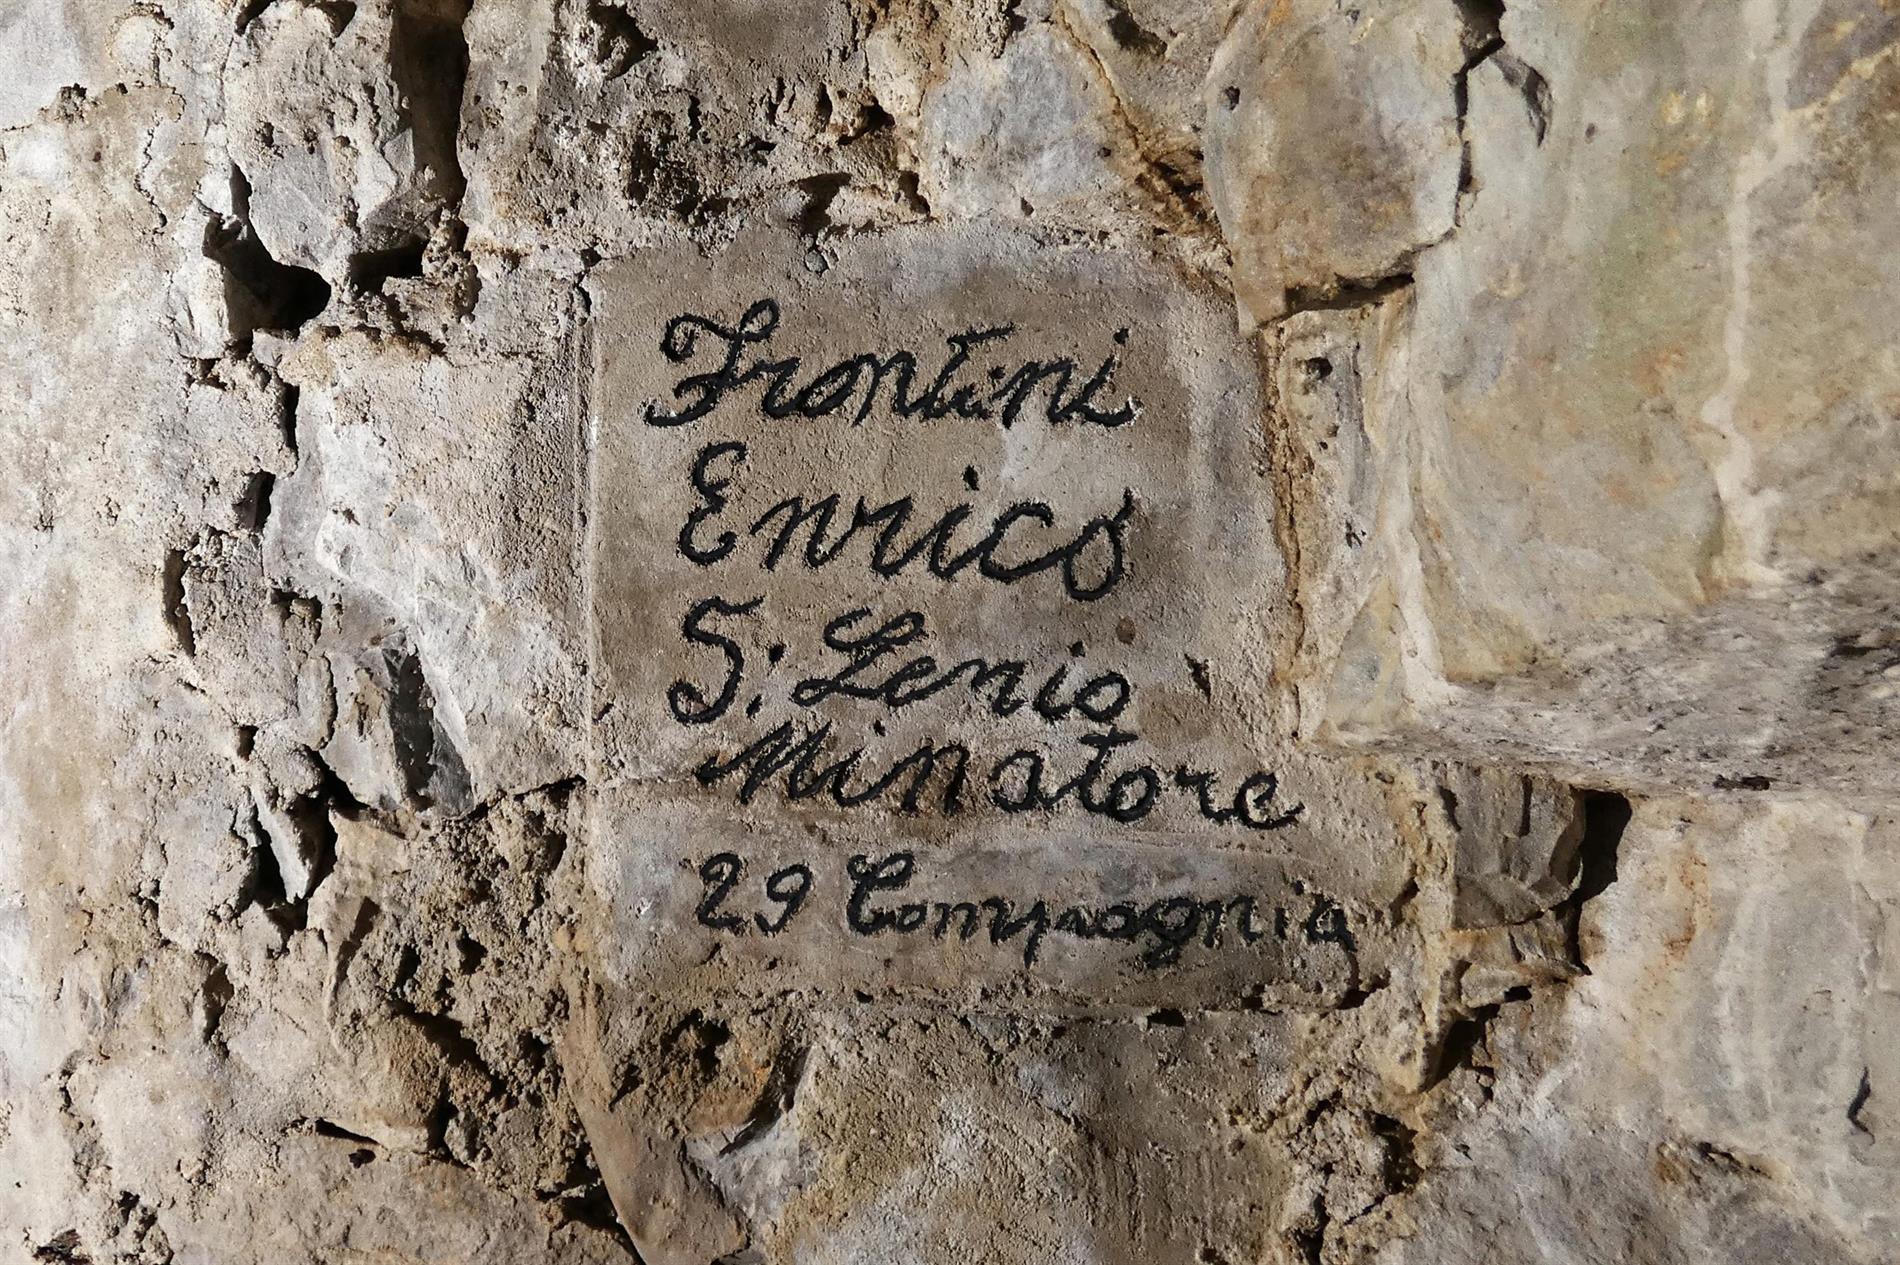 Frontini
Enrico
5: Genio
Minatore
29 Compagnia